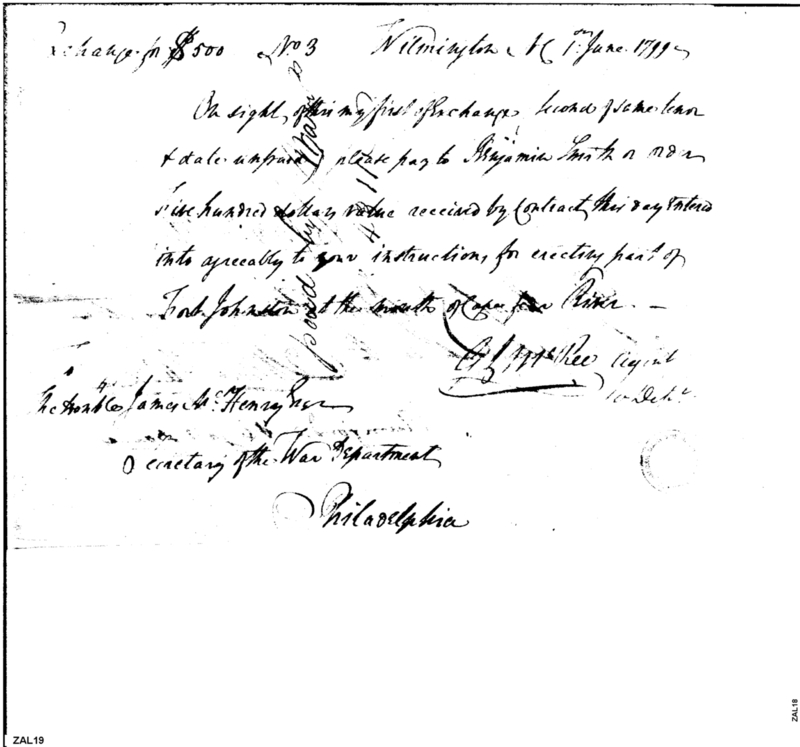 Exchange for $500 No 3 Wilmington N C 1st June 1799
On sight of this my first of Exchange Second of same tenor
& date unpaid please pay to Benjamin Smith or order
Five hundred dollars value received by Contract this day Entered
into agreeably to your instructions for erecting part of
Fort Johnston at the mouth of Cape fear River. —
McRee Agent
War Dept.
The Honble James McHenry Esqr
Secretary of the War Department
Philadelphia
ZAL19
ZAL18